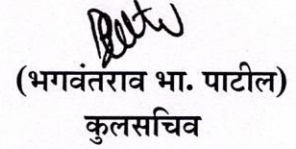 (भगवंतराव भा. पाटील)
कुलसचिव